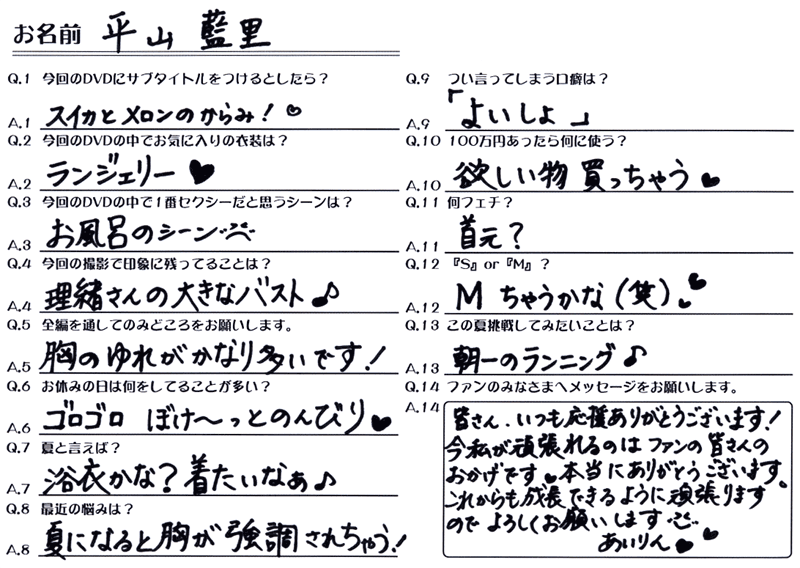 お名前 平山 藍里
Q.1 今回のDVDにサブタイトルをつけるとしたら？
A.1 スイカとメロンのからみ！♡
Q.2 今回のDVDの中でお気に入りの衣装は？
A.2 ランジェリー♥
Q.3 今回のDVDの中で1番セクシーだと思うシーンは？
A.3 お風呂のシーン
Q.4 今回の撮影で印象に残ってることは？
A.4 理緒さんの大きなバスト♪
Q.5 全編を通してのみどころをお願いします。
A.5 胸のゆれがかなり多いです！
Q.6 お休みの日は何をしてることが多い？
A.6 ゴロゴロ ぼけ〜っとのんびり♥
Q.7 夏と言えば？
A.7 浴衣かな？着たいなぁ♪
Q.8 最近の悩みは？
A.8 夏になると胸が強調されちゃう！
Q.9 つい言ってしまう口癖は？
A.9 「よいしょ」
Q.10 100万円あったら何に使う？
A.10 欲しい物買っちゃう♥
Q.11 何フェチ？
A.11 首元？
Q.12 『S』or『M』？
A.12 M ちゃうかな（笑）♥
Q.13 この夏挑戦してみたいことは？
A.13 朝一のランニング♪
Q.14 ファンのみなさまへメッセージをお願いします。
A.14 皆さん、いつも応援ありがとうございます！
今私が頑張れるのはファンの皆さんの
おかげです♥本当にありがとうございます。
これからも成長できるように頑張ります
のでよろしくお願いします
あいりん♥♥